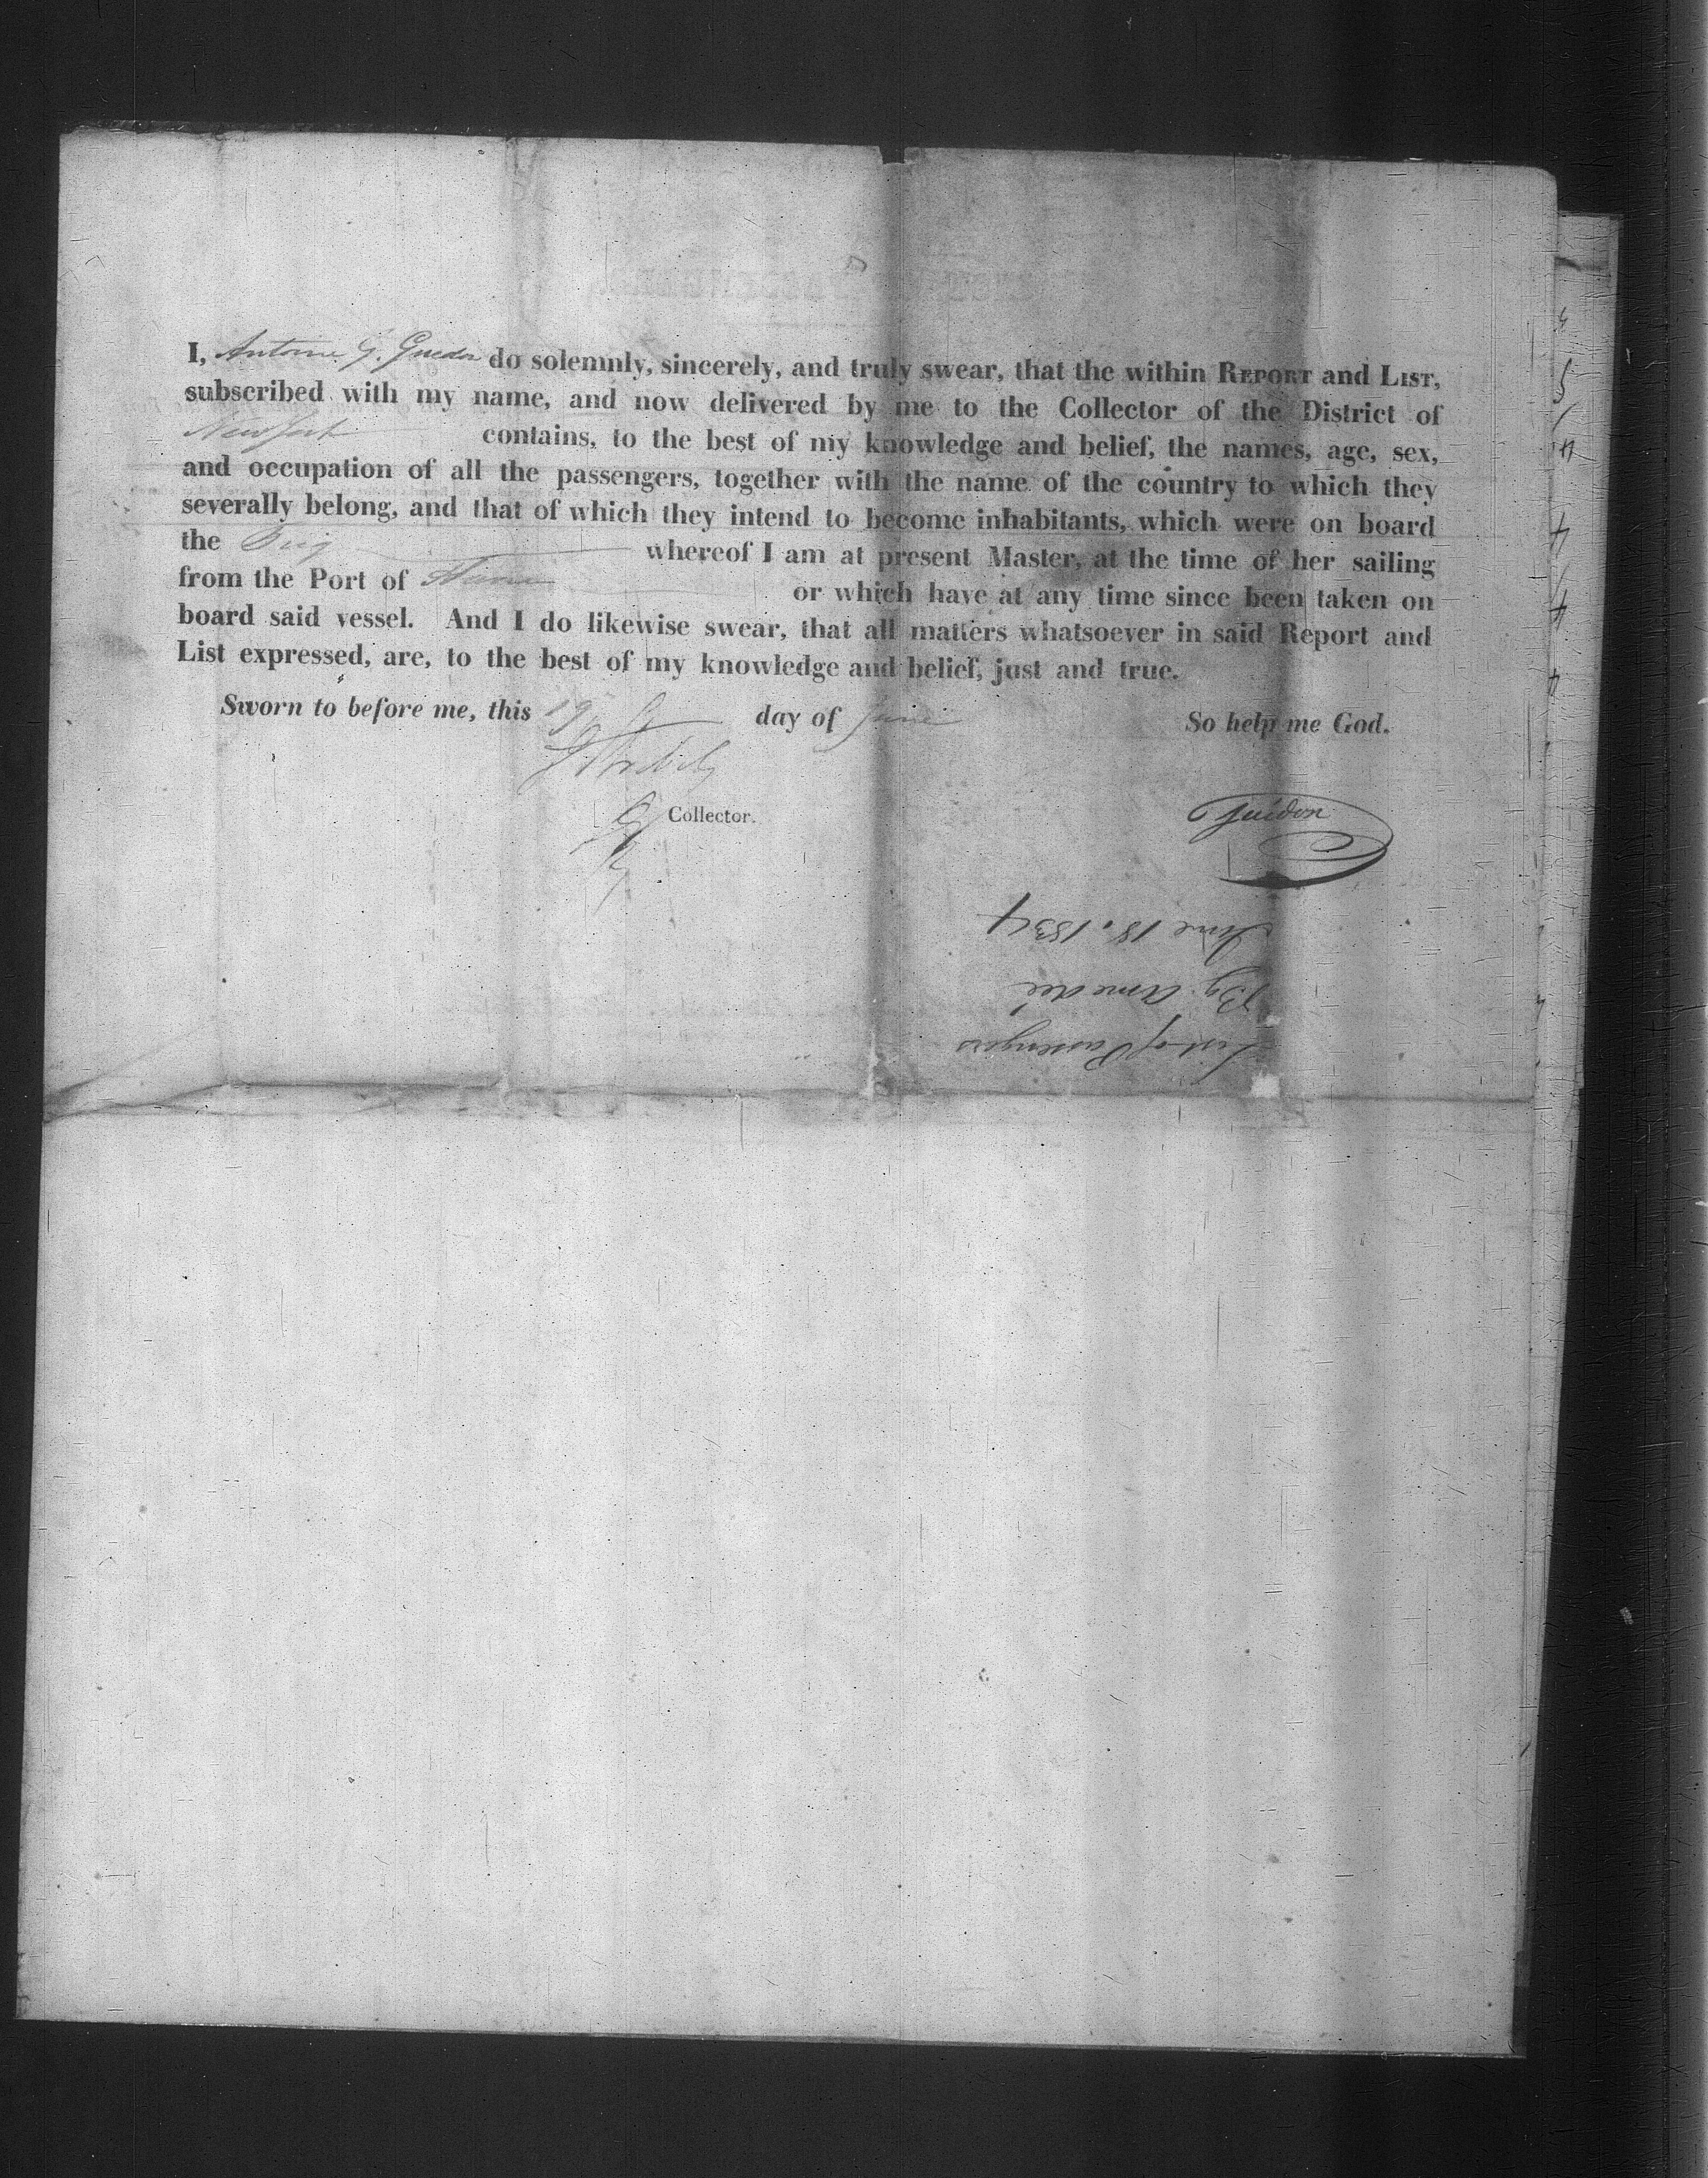 I, Antoine G. Guedon do solemnly, sincerely, and truly swear, that the within REPORT and LIST,
subscribed with my name, and now delivered by me to the Collector of the District of
New York contains, to the best of my knowledge and belief, the names, age, sex,
and occupation of all the passengers, together with the name of the country to which they
severally belong, and that of which they intend to become inhabitants, which were on board
the Brig whereof I am at present Master, at the time of her sailing
from the Port of or which have at any time since been taken on
board said vessel. And I do likewise swear, that all matters whatsoever in said Report and
List expressed, are, to the best of my knowledge and belief, just and true.
Sworn to before me, this 19 day of June So help me God.
Collector.
Guédon
List of Passengers
Bg. Amedée
June 18. 1834